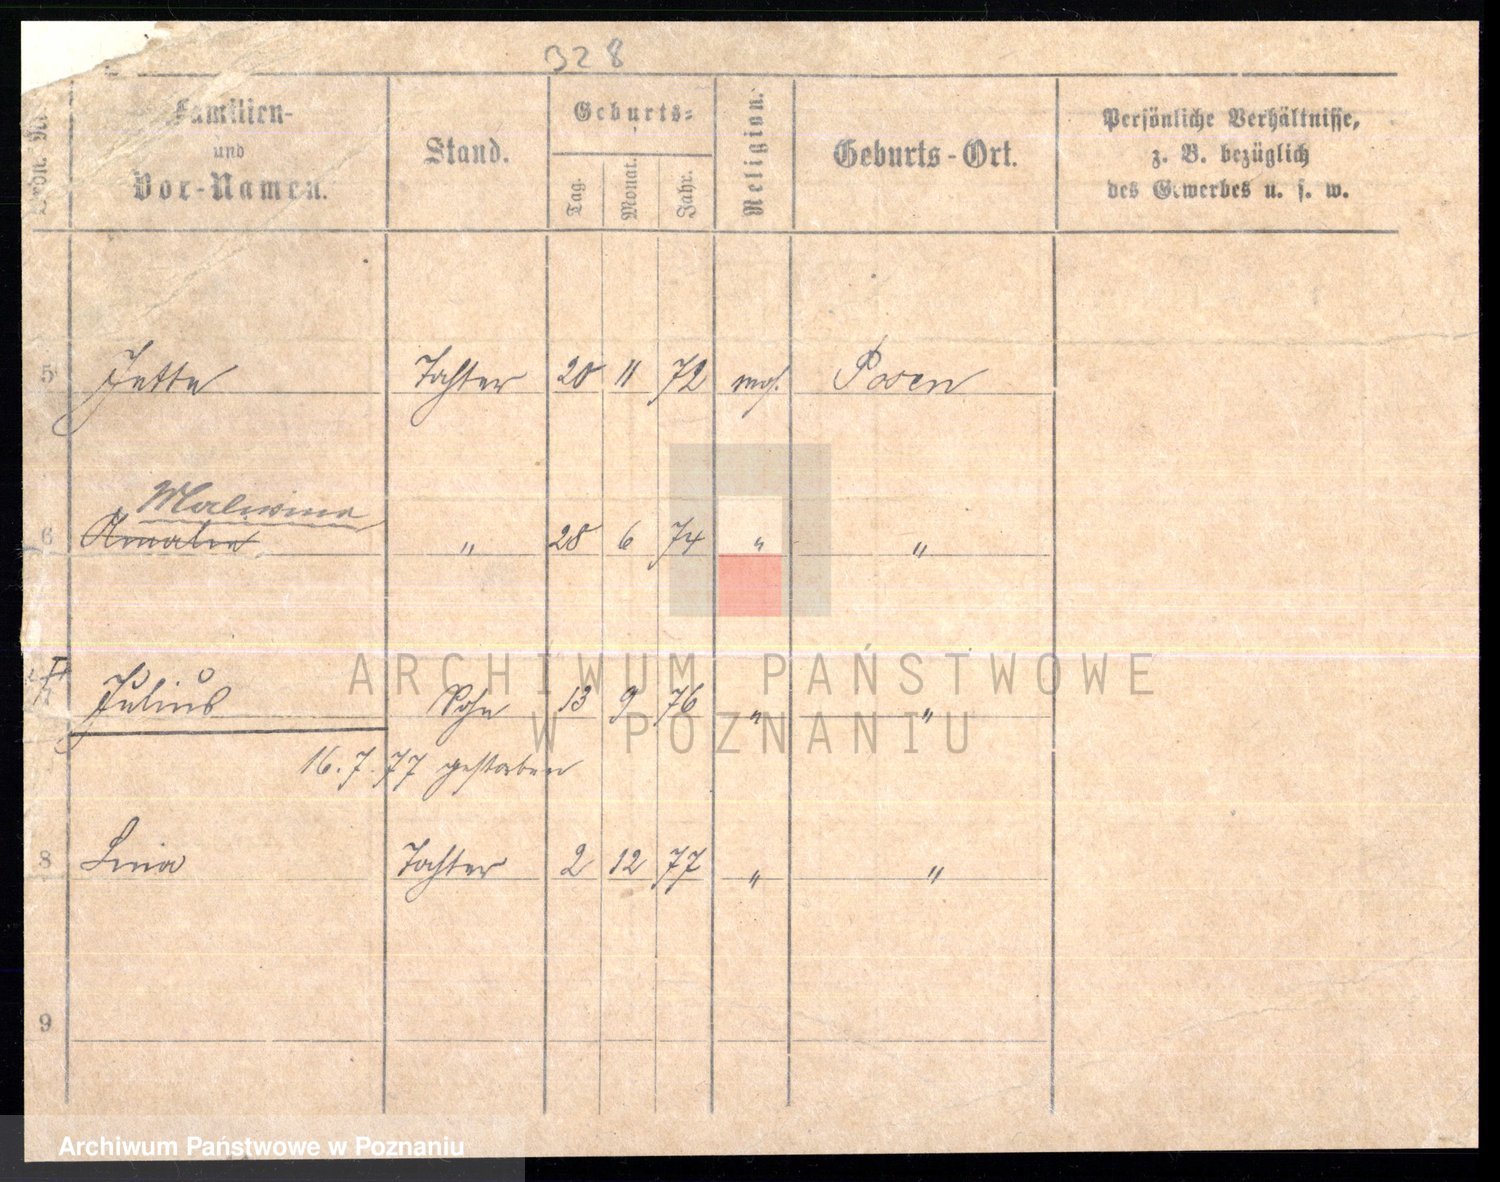 328
Ordn. Nr. Familien- und Vor-Namen. Stand. Geburts- Tag. Monat. Jahr. Religion. Geburts-Ort. Persönliche Verhältnisse, z. B. bezüglich des Gewerbes u. s. w.
5 Jette Tochter 20 11 72 mos. Posen
Malwina
6 Amalie " 28 6 74 " "
Julius Sohn 13 9 76 " "
16. 7. 77 gestorben
8 Lina Tochter 2 12 77 " "
9
ARCHIWUM PAŃSTWOWE
W POZNANIU
Archiwum Państwowe w Poznaniu